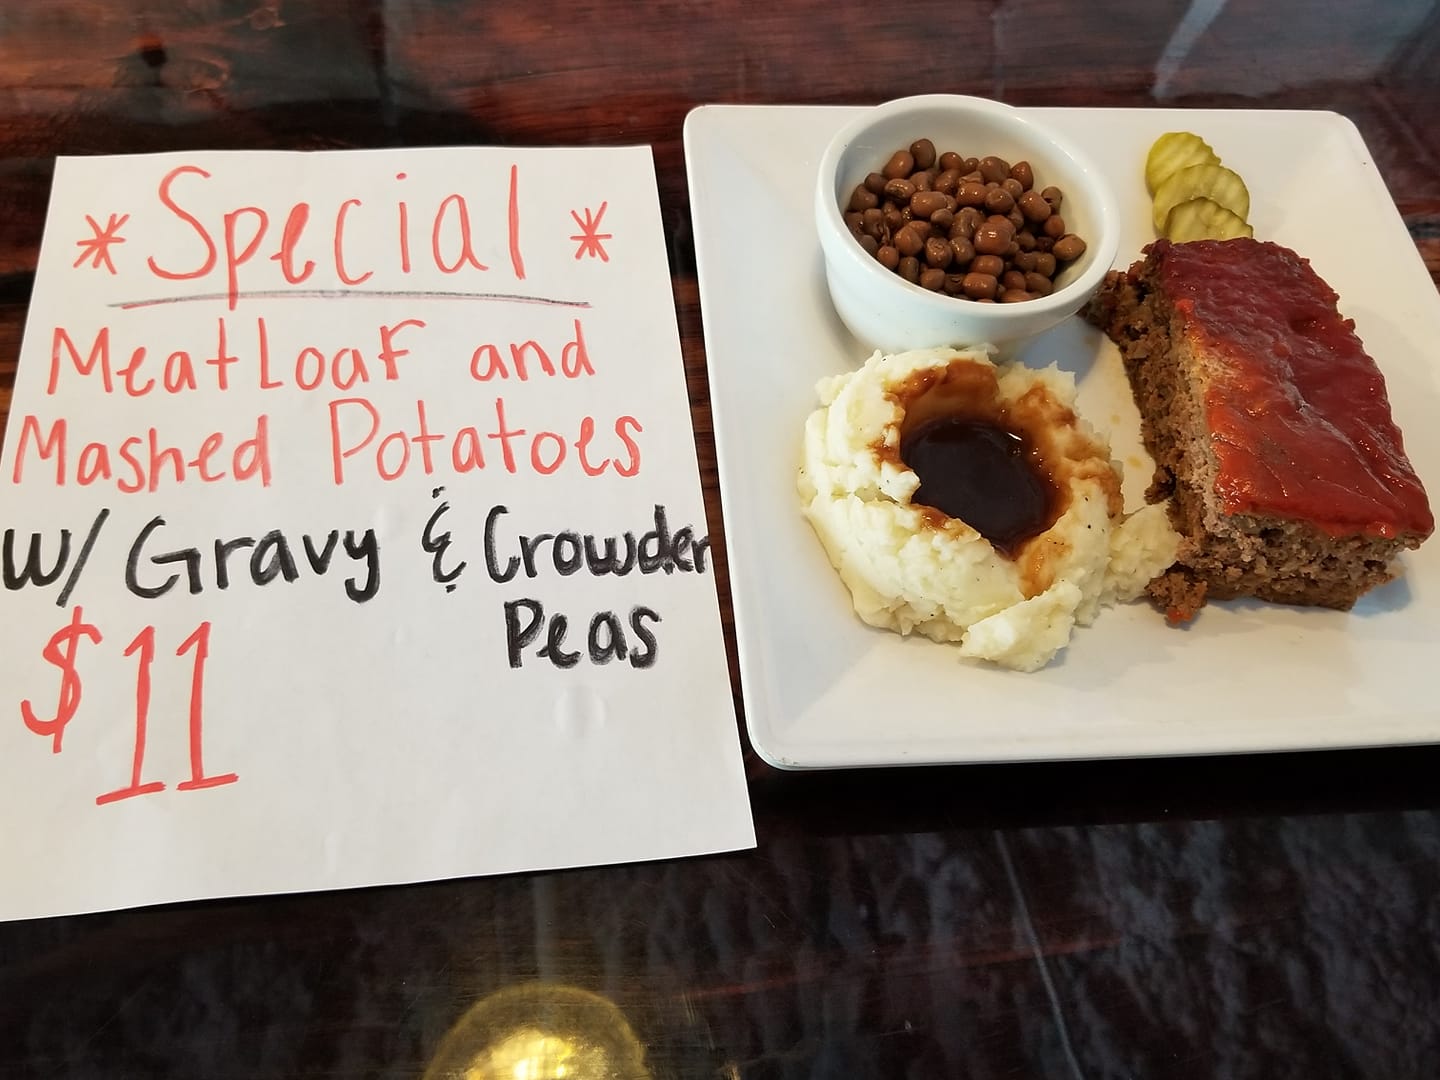 * Special *
Meatloaf and
Mashed Potatoes
w/ Gravy & Crowder
Peas
$11